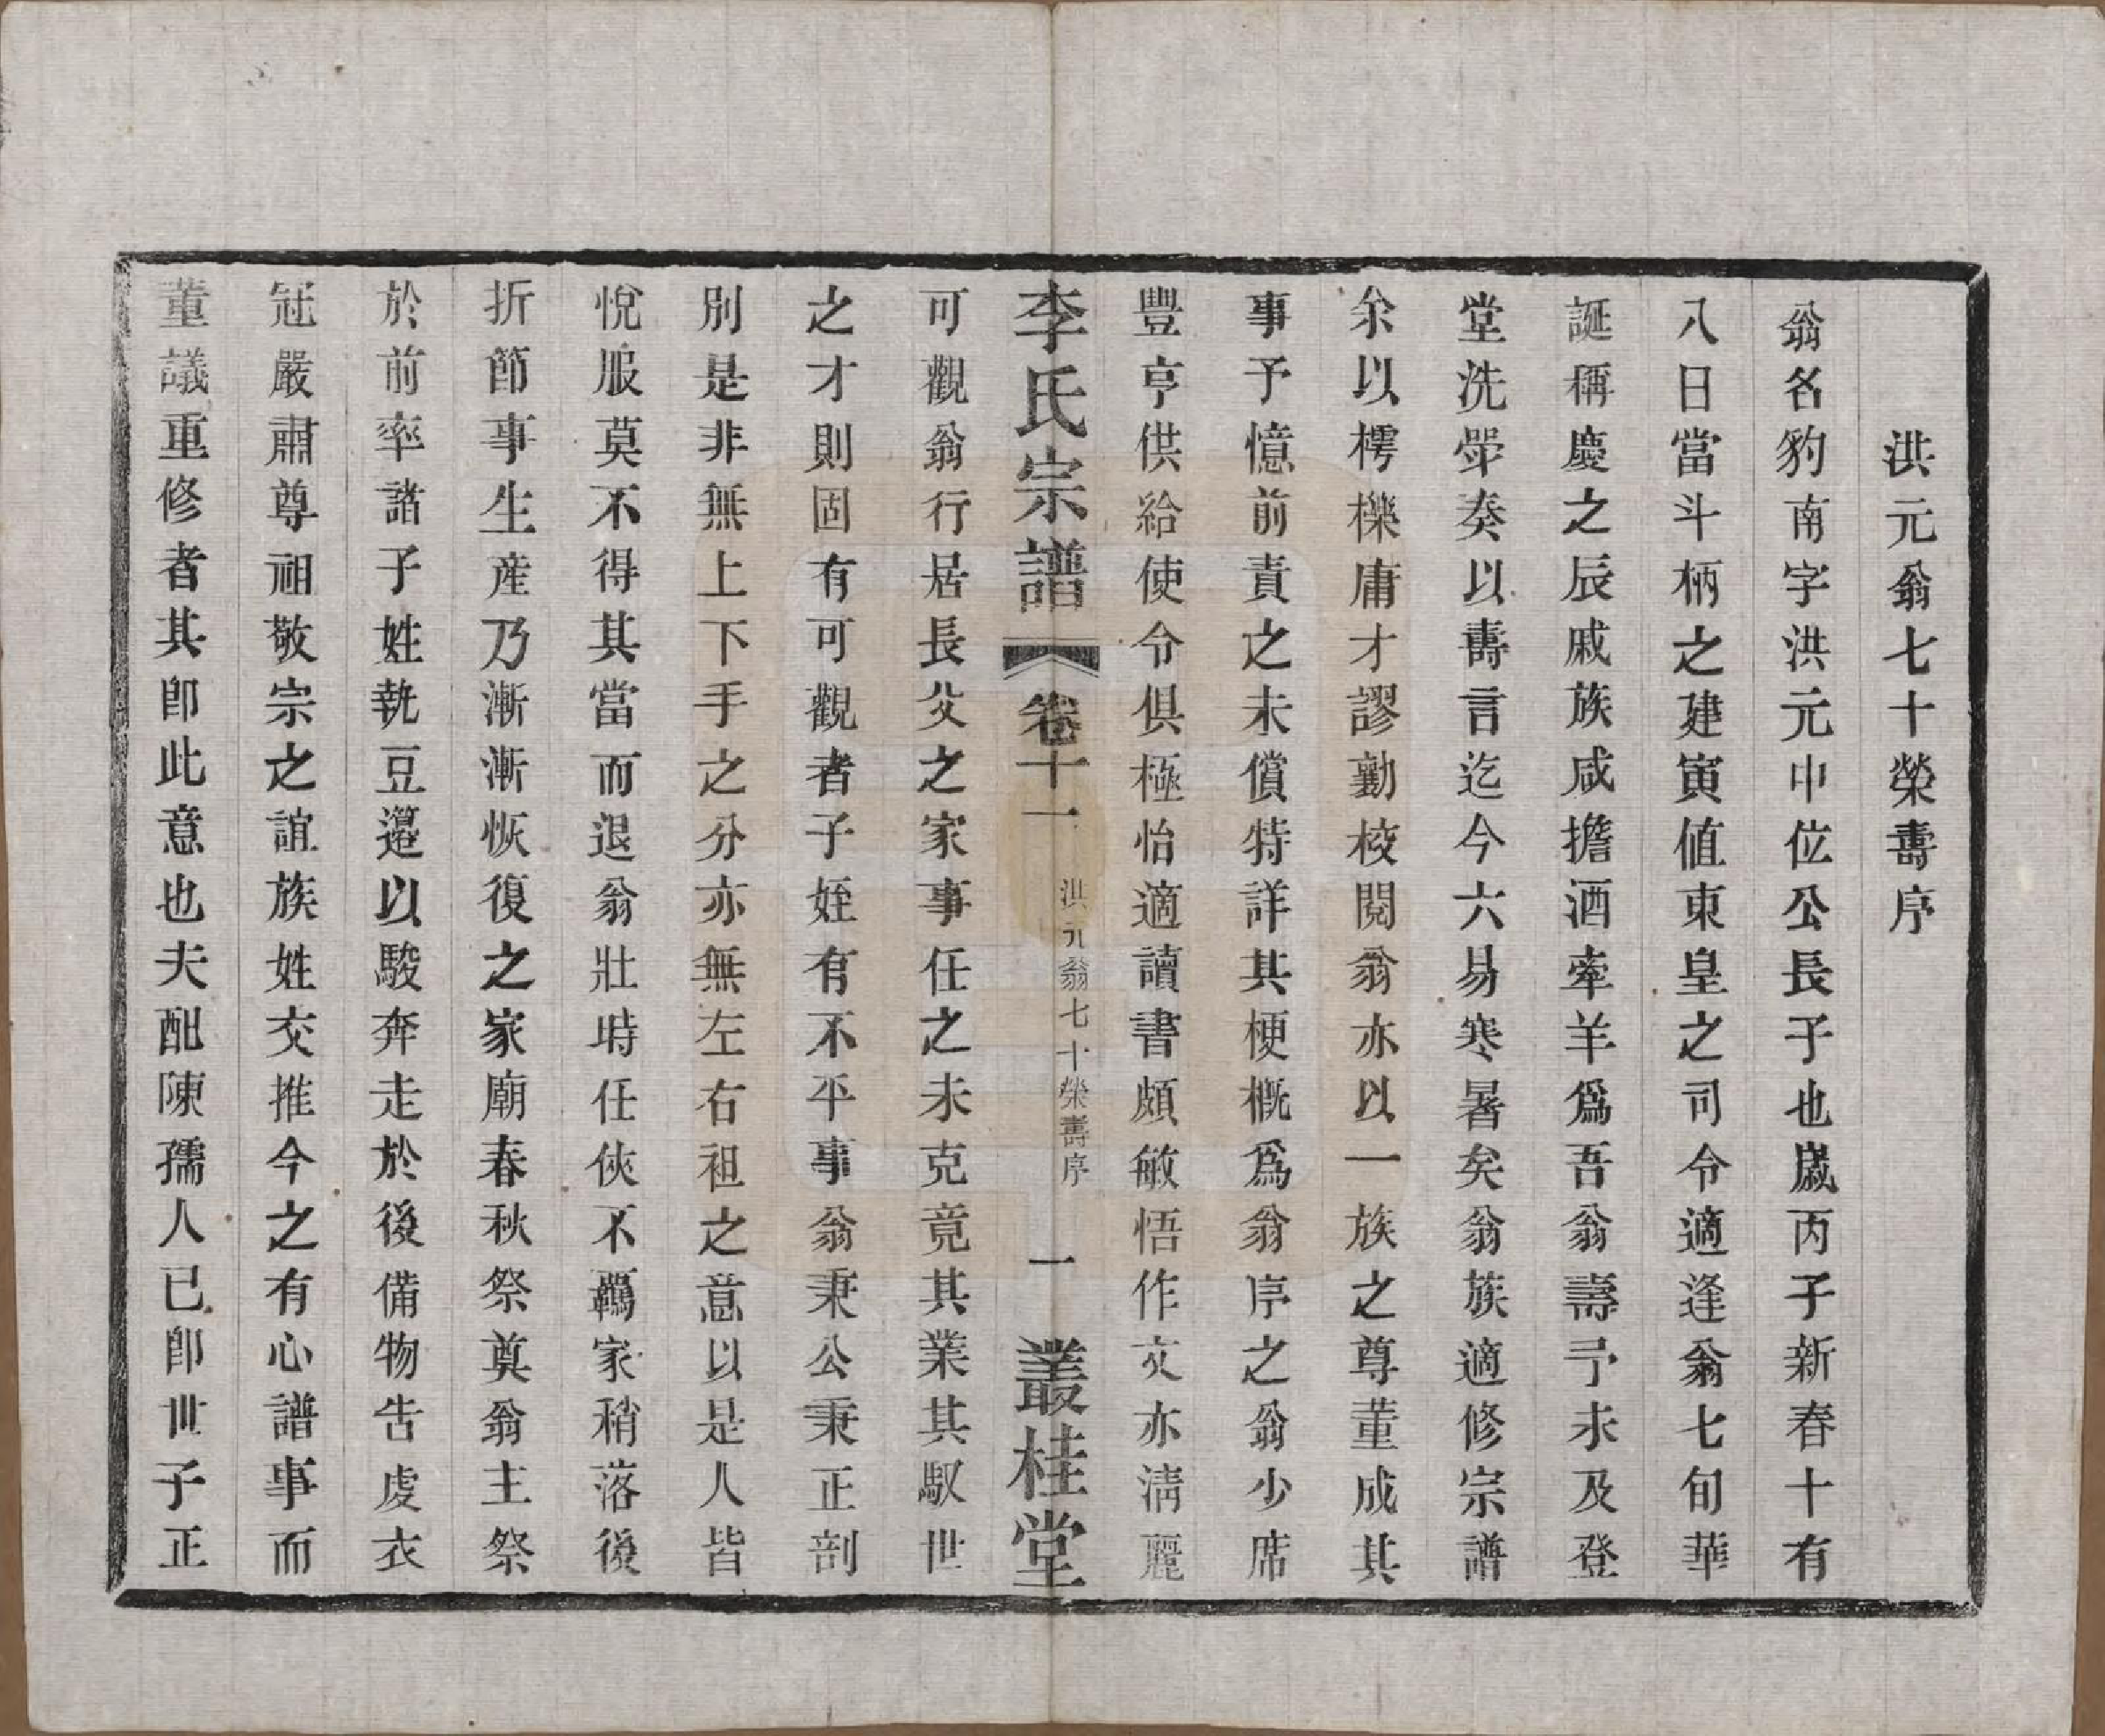 洪元翁七十榮壽序
翁名豹南字洪元中位公長子也歲丙子新春十有
八日當斗柄之建寅值東皇之司令適逢翁七旬華
誕稱慶之辰戚族咸擔酒牽羊爲吾翁壽予未及登
堂洗斝奏以壽言迄今六易寒暑矣翁族適修宗譜
余以樗櫟庸才謬勷校閱翁亦以一族之尊董成其
事予憶前責之未償特詳其梗概爲翁序之翁少席
豐亨供給使令俱極怡適讀書頗敏悟作文亦清麗
李氏宗譜 卷十一 洪元翁七十榮壽序 一 叢桂堂
可觀翁行居長父之家事任之未克竟其業其馭世
之才則固有可觀者子姪有不平事翁秉公秉正剖
別是非無上下手之分亦無左右袒之意以是人皆
悅服莫不得其當而退翁壯時任俠不羈家稍落後
折節事生産乃漸漸恢復之家廟春秋祭奠翁主祭
於前率諸子姓執豆籩以駿奔走於後備物告虔衣
冠嚴肅尊祖敬宗之誼族姓交推今之有心譜事而
董議重修者其即此意也夫配陳孺人已即世子正